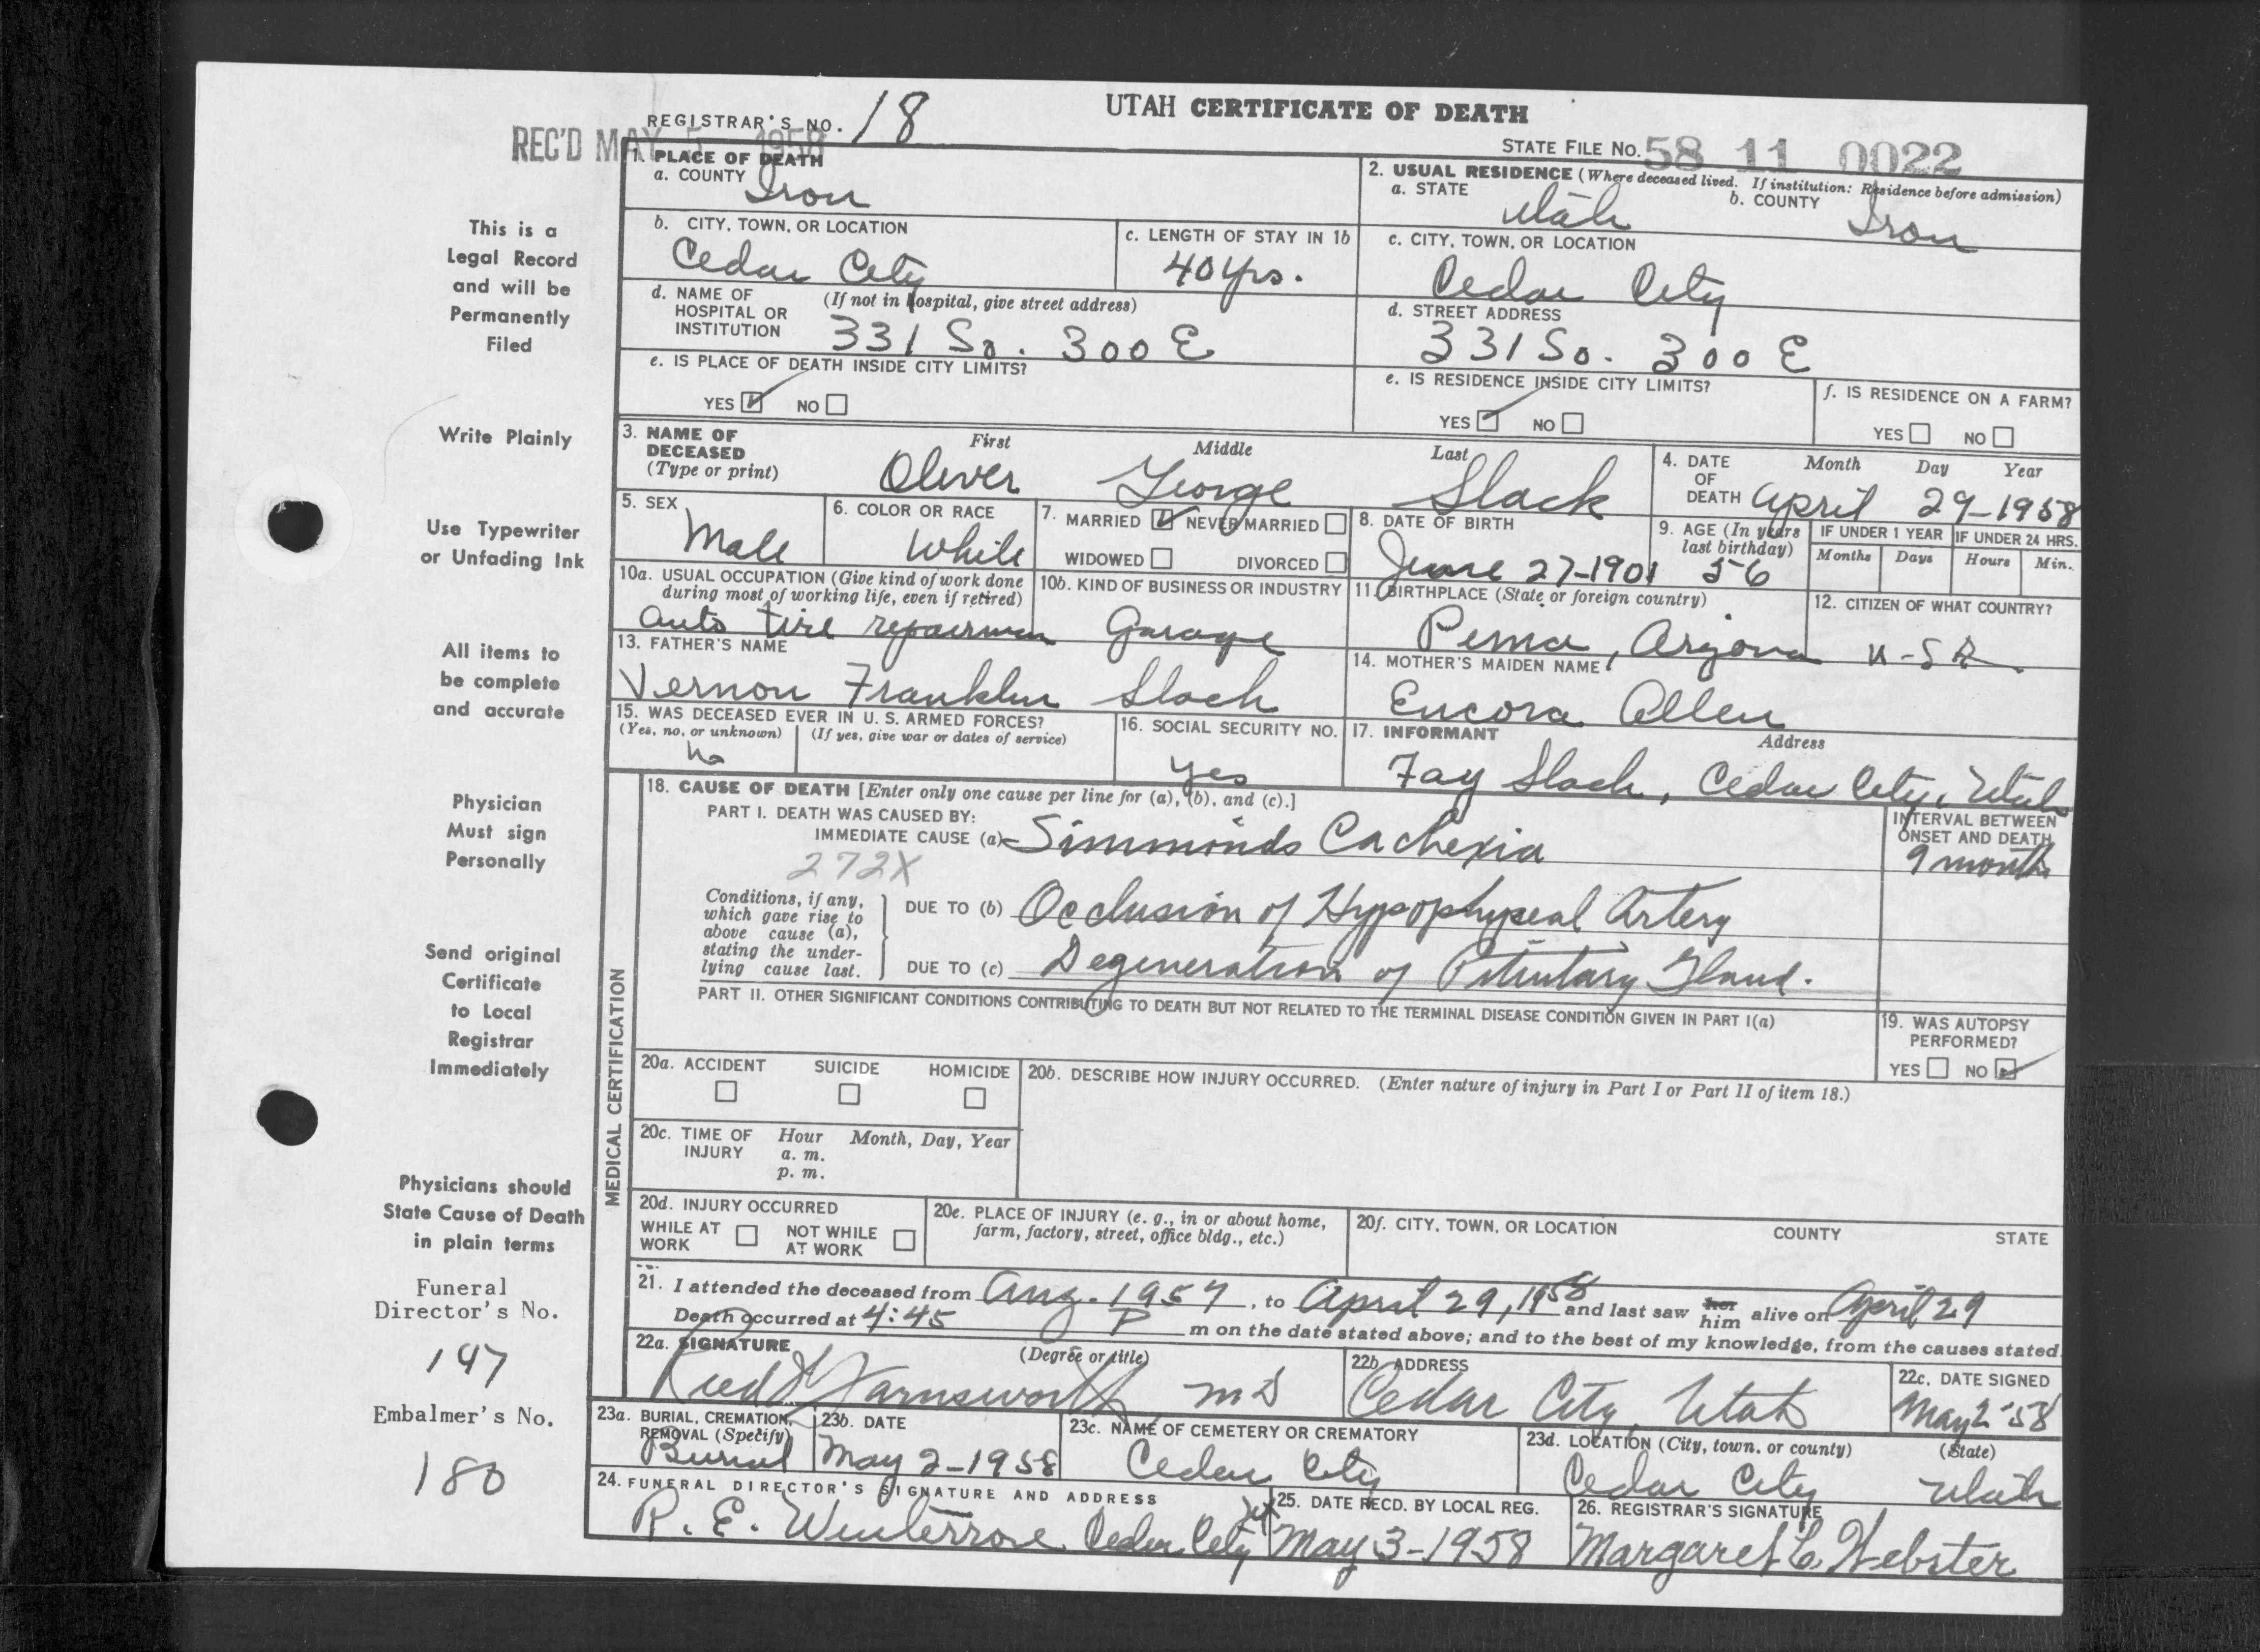 UTAH CERTIFICATE OF DEATH
REGISTRAR'S NO. 18
REC'D MAY 5 1958
STATE FILE No. 58 11 0022
1. PLACE OF DEATH
a. COUNTY Iron
2. USUAL RESIDENCE (Where deceased lived. If institution: Residence before admission)
a. STATE Utah b. COUNTY Iron
b. CITY, TOWN, OR LOCATION Cedar City
c. LENGTH OF STAY IN 1b 40 yrs.
c. CITY, TOWN, OR LOCATION Cedar City
d. NAME OF HOSPITAL OR INSTITUTION (If not in hospital, give street address)
331 So. 300 E
d. STREET ADDRESS
331 So. 300 E
e. IS PLACE OF DEATH INSIDE CITY LIMITS?
YES NO
e. IS RESIDENCE INSIDE CITY LIMITS?
YES NO
f. IS RESIDENCE ON A FARM?
YES NO
3. NAME OF DECEASED (Type or print)
First Middle Last
Oliver George Slack
4. DATE OF DEATH Month Day Year
April 29-1958
5. SEX Male
6. COLOR OR RACE White
7. MARRIED NEVER MARRIED
WIDOWED DIVORCED
8. DATE OF BIRTH June 27-1901
9. AGE (In years last birthday) 56
IF UNDER 1 YEAR Months Days
IF UNDER 24 HRS. Hours Min.
10a. USUAL OCCUPATION (Give kind of work done during most of working life, even if retired)
Auto tire repairman
10b. KIND OF BUSINESS OR INDUSTRY
Garage
11. BIRTHPLACE (State or foreign country)
Pema, Arizona
12. CITIZEN OF WHAT COUNTRY?
U-S A
13. FATHER'S NAME
Vernon Franklin Slack
14. MOTHER'S MAIDEN NAME
Encora Allen
15. WAS DECEASED EVER IN U. S. ARMED FORCES?
(Yes, no, or unknown) (If yes, give war or dates of service)
no
16. SOCIAL SECURITY NO.
yes
17. INFORMANT Address
Fay Slack, Cedar City, Utah
MEDICAL CERTIFICATION
18. CAUSE OF DEATH [Enter only one cause per line for (a), (b), and (c).]
PART I. DEATH WAS CAUSED BY:
IMMEDIATE CAUSE (a) Simmonds Cachexia
272X
INTERVAL BETWEEN ONSET AND DEATH
9 month
Conditions, if any, which gave rise to above cause (a), stating the underlying cause last.
DUE TO (b) Occlusion of Hypophyseal Artery
DUE TO (c) Degeneration of Pituitary Gland.
PART II. OTHER SIGNIFICANT CONDITIONS CONTRIBUTING TO DEATH BUT NOT RELATED TO THE TERMINAL DISEASE CONDITION GIVEN IN PART I(a)
19. WAS AUTOPSY PERFORMED?
YES NO
20a. ACCIDENT SUICIDE HOMICIDE
20b. DESCRIBE HOW INJURY OCCURRED. (Enter nature of injury in Part I or Part II of item 18.)
20c. TIME OF INJURY Hour a. m. p. m. Month, Day, Year
20d. INJURY OCCURRED
WHILE AT WORK NOT WHILE AT WORK
20e. PLACE OF INJURY (e. g., in or about home, farm, factory, street, office bldg., etc.)
20f. CITY, TOWN, OR LOCATION COUNTY STATE
21. I attended the deceased from Aug. 1957, to April 29, 1958 and last saw her him alive on April 29
Death occurred at 4:45 P m on the date stated above; and to the best of my knowledge, from the causes stated.
22a. SIGNATURE (Degree or title)
Farnsworth MD
22b. ADDRESS
Cedar City, Utah
22c. DATE SIGNED
May 2 '58
23a. BURIAL, CREMATION, REMOVAL (Specify)
Burial
23b. DATE
May 2-1958
23c. NAME OF CEMETERY OR CREMATORY
Cedar City
23d. LOCATION (City, town, or county) (State)
Cedar City Utah
24. FUNERAL DIRECTOR'S SIGNATURE AND ADDRESS
R. E. Winterrose Cedar City Ut
25. DATE RECD. BY LOCAL REG.
May 3-1958
26. REGISTRAR'S SIGNATURE
Margaret C. Webster
This is a
Legal Record
and will be
Permanently
Filed
Write Plainly
Use Typewriter
or Unfading Ink
All items to
be complete
and accurate
Physician
Must sign
Personally
Send original
Certificate
to Local
Registrar
Immediately
Physicians should
State Cause of Death
in plain terms
Funeral
Director's No.
147
Embalmer's No.
180